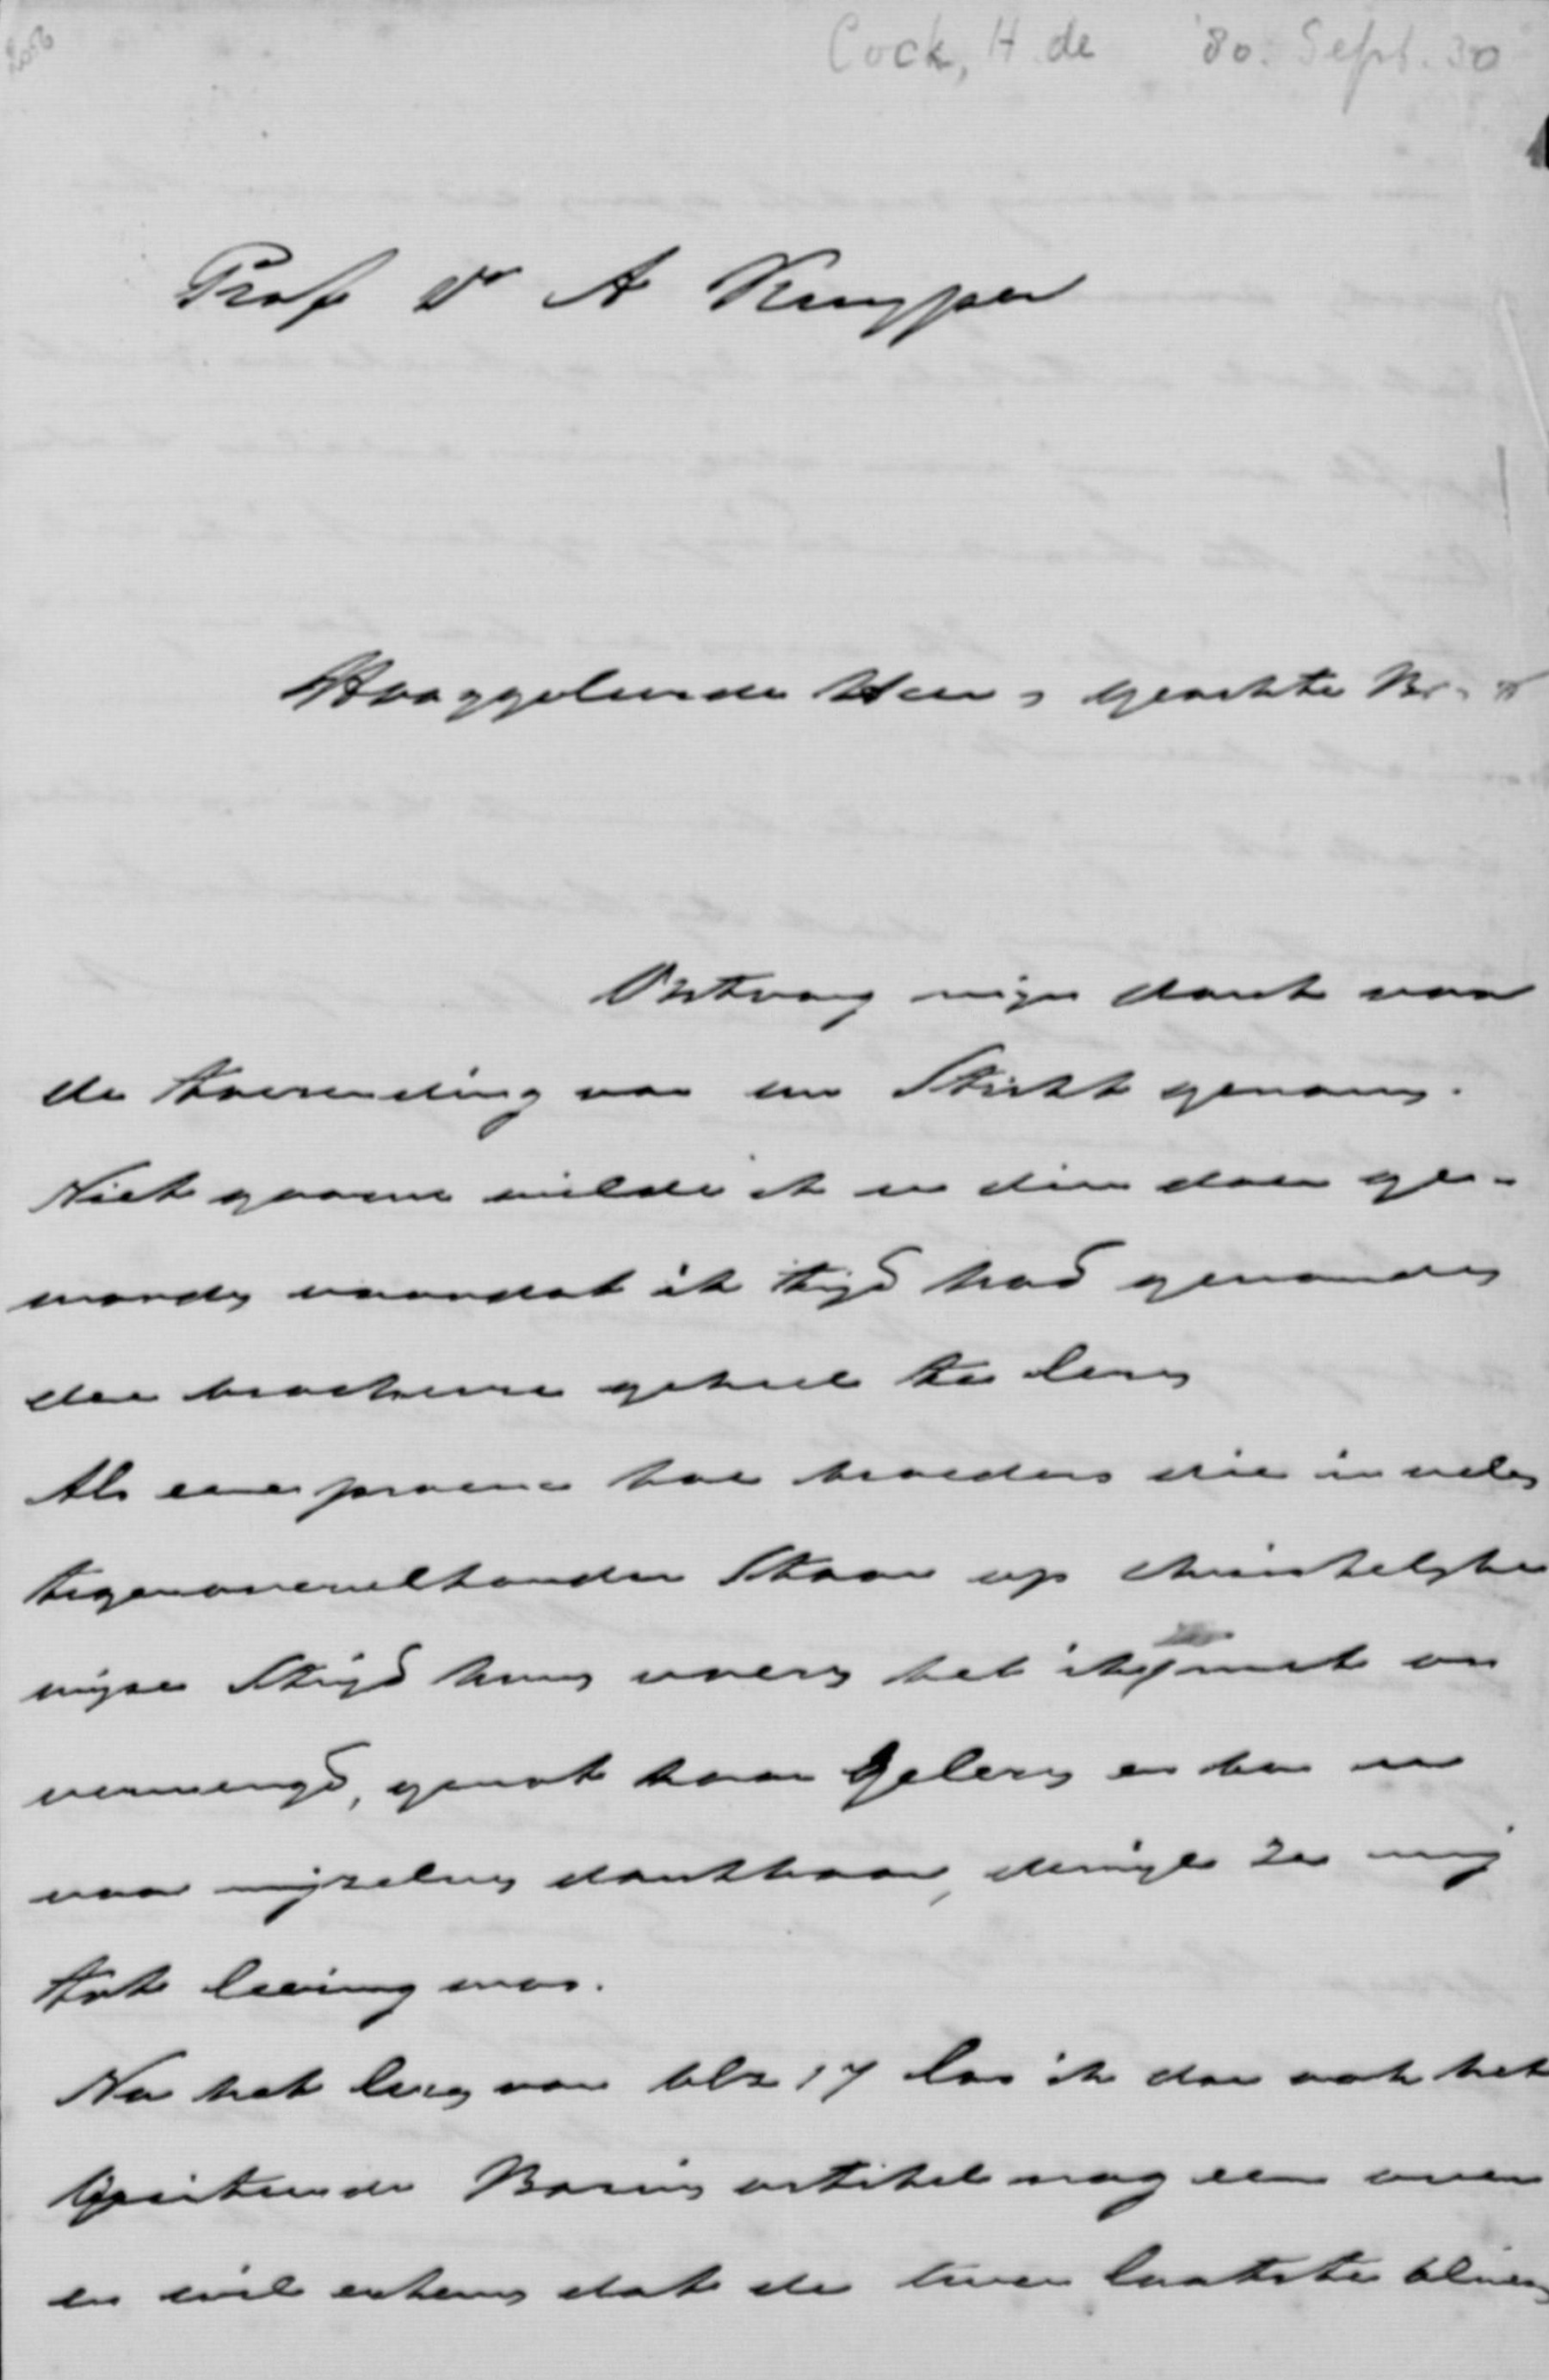 2056
Cock, H. de '80. Sept. 30
Prof Dr A Kuyper
Hooggeleerde Heer, geachte Br.
Ontvang mijn dank voor
de toezending van uw Strikt genomen.
Niet gaarne wilde ik u dien doen ge-
worden voordat ik tijd had gevonden
de brochure geheel te lezen
Als eene proeve hoe broeders die in velen
tegenover elkander staan op christelijke
wijze strijd kunnen voeren heb ik met
, gruot haar gelezen en ben u
voor mijzelven dankbaar, dewijl ze mij
tot leering was.
Na het lezen van blz 17 las ik dan ook het
Bazuin artikel nog eens over
en wil erkennen dat de twee laatste